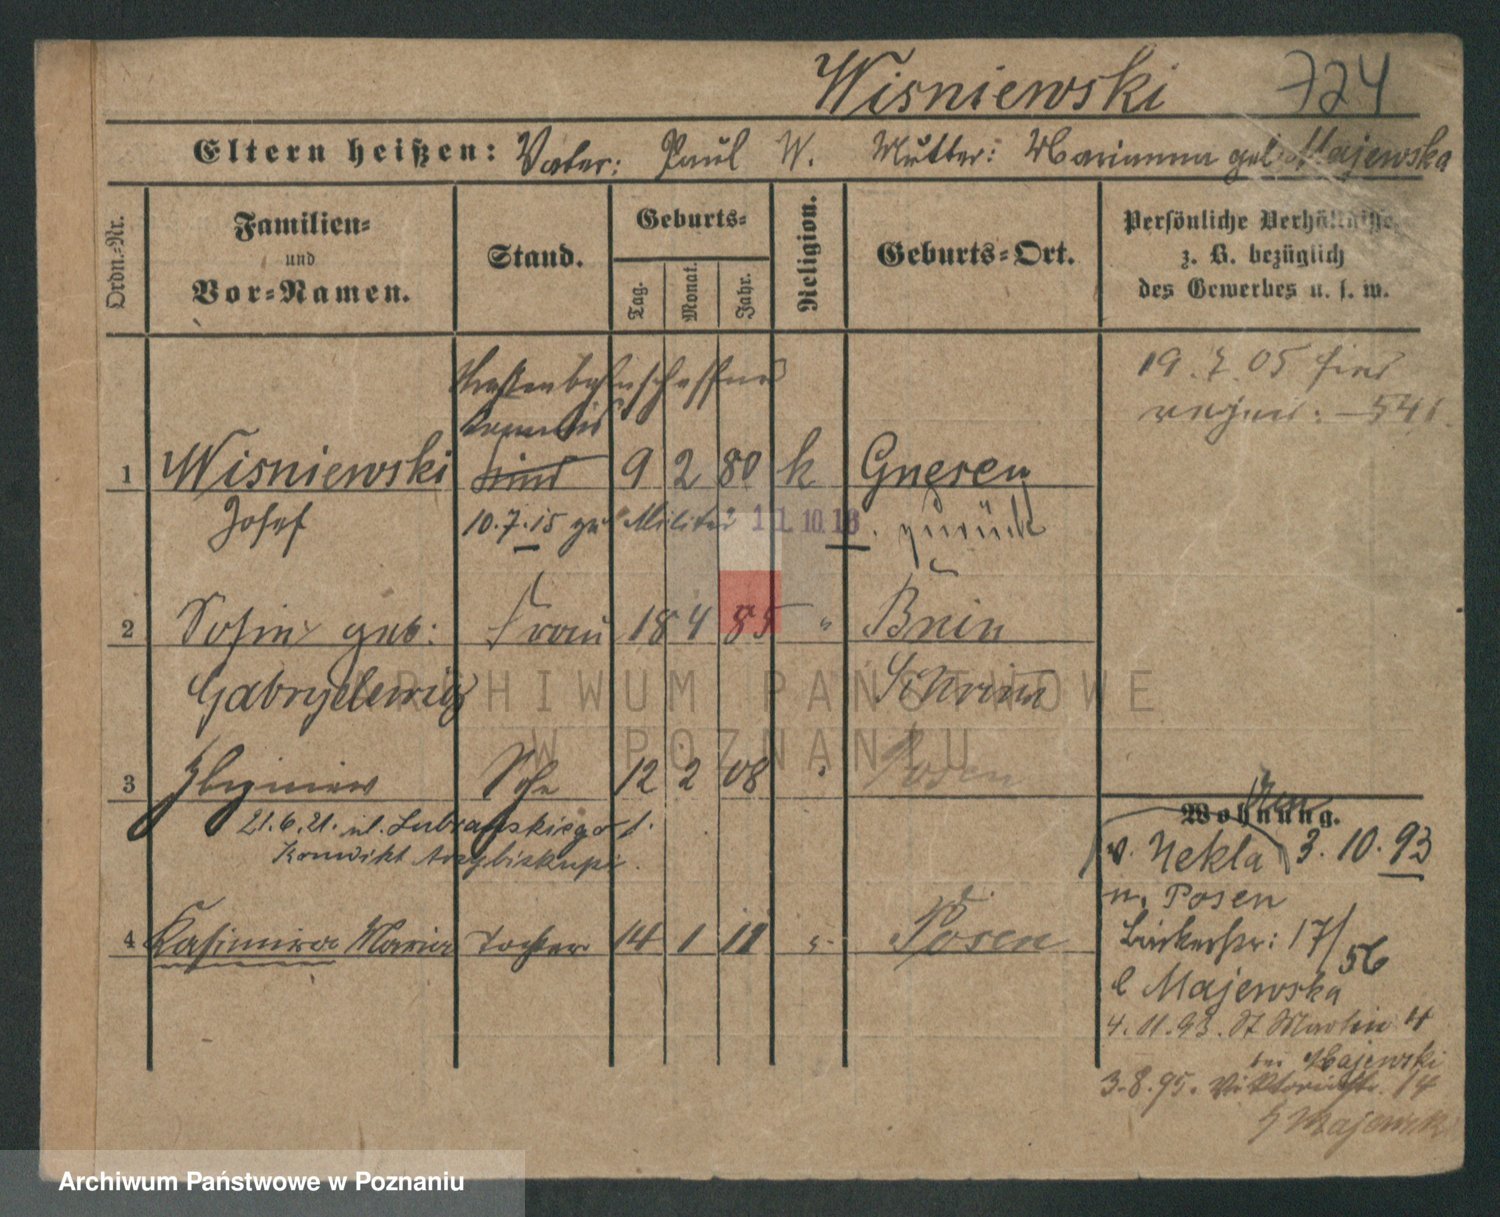 Wisniewski 724
Eltern heißen: Vater: Paul W. Mutter: Marianna geb. Majewska
Ordn.-Nr.
Familien-
und
Vor-Namen.
Stand.
Geburts-
Tag. Monat. Jahr.
Religion.
Geburts-Ort.
Persönliche Verhältnisse,
z. B. bezüglich
des Gewerbes u. s. w.
19.7.05
541
1 Wisniewski 9 2 80 k Gnesen
Josef 10.7.15 zu Militär 11.10.18. zurück
2 Sofia geb: Frau 18 4 85 " Bnin
Gabryelewicz Schrimm
3 Zbigniew Sohn 12 2 08 " Posen
21.6.21. ul. Lubrańskiego 1.
Konwikt Arcybiskupi.
4 Kasimira Maria Tochter 14 1 11 " Posen
Wohnung.
v. Nekla 3.10.93
n. Posen
17/56
Majewska
4.11.93. St Martin 4
bei Majewski
3.8.95. Viktoriastr. 14
Majewski
ARCHIWUM PAŃSTWOWE
W POZNANIU
Archiwum Państwowe w Poznaniu